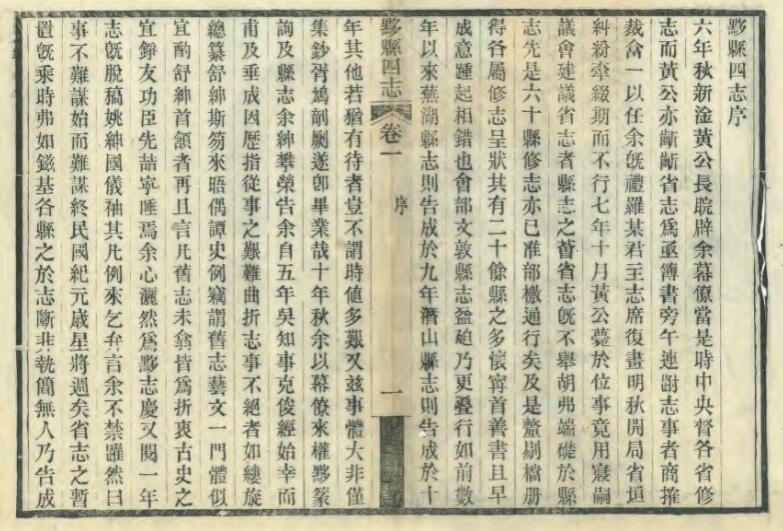 黟縣四志序
六年秋新淦黃公長皖辟余幕僚當是時中央督各省修
志而黃公亦斷斷省志爲亟簿書旁午連尉志事者商搉
裁僉一以任余旣禮羅某君主志席復畫明秋開局省垣
糾紛牽綴期而不行七年十月黃公薨於位事竟用寢嗣
議會建議省志者縣志之蒈省志旣不舉胡弗端礎於縣
志先是六十縣修志亦已准部檄通行矣及是釐剔檔册
得各屬修志呈狀其有二十餘縣之多懷甯首善書且早
成意踵起相錯也會部文敦縣志益廹乃更疊行如前數
年以來蕪湖縣志則告成於九年潛山縣志則告成於十
黟縣四志
卷一
序
一
年其他若猶有待者豈不謂時値多艱又兹事體大非僅
集鈔胥鳩剞劂遂卽畢業哉十年秋余以幕僚來權黟篆
詢及縣志余紳攀榮告余自五年吳知事克俊經始幸而
甫及垂成因歷指從事之艱難曲折志事不絕者如縷旋
總纂舒紳斯笏來晤偶譚史例竊謂舊志藝文一門體似
宜酌舒紳首頷者再且言凡舊志未僉皆爲折衷古史之
宜錚友功臣先喆寧唾焉余心灑然爲黟志慶又閱一年
志旣脫稿姚紳國儀袖其凡例來乞弁言余不禁躍然曰
事不難謀始而難謀終民國紀元歲星將週矣省志之暫
置旣乘時弗如鎡基各縣之於志斷非執簡無人乃告成